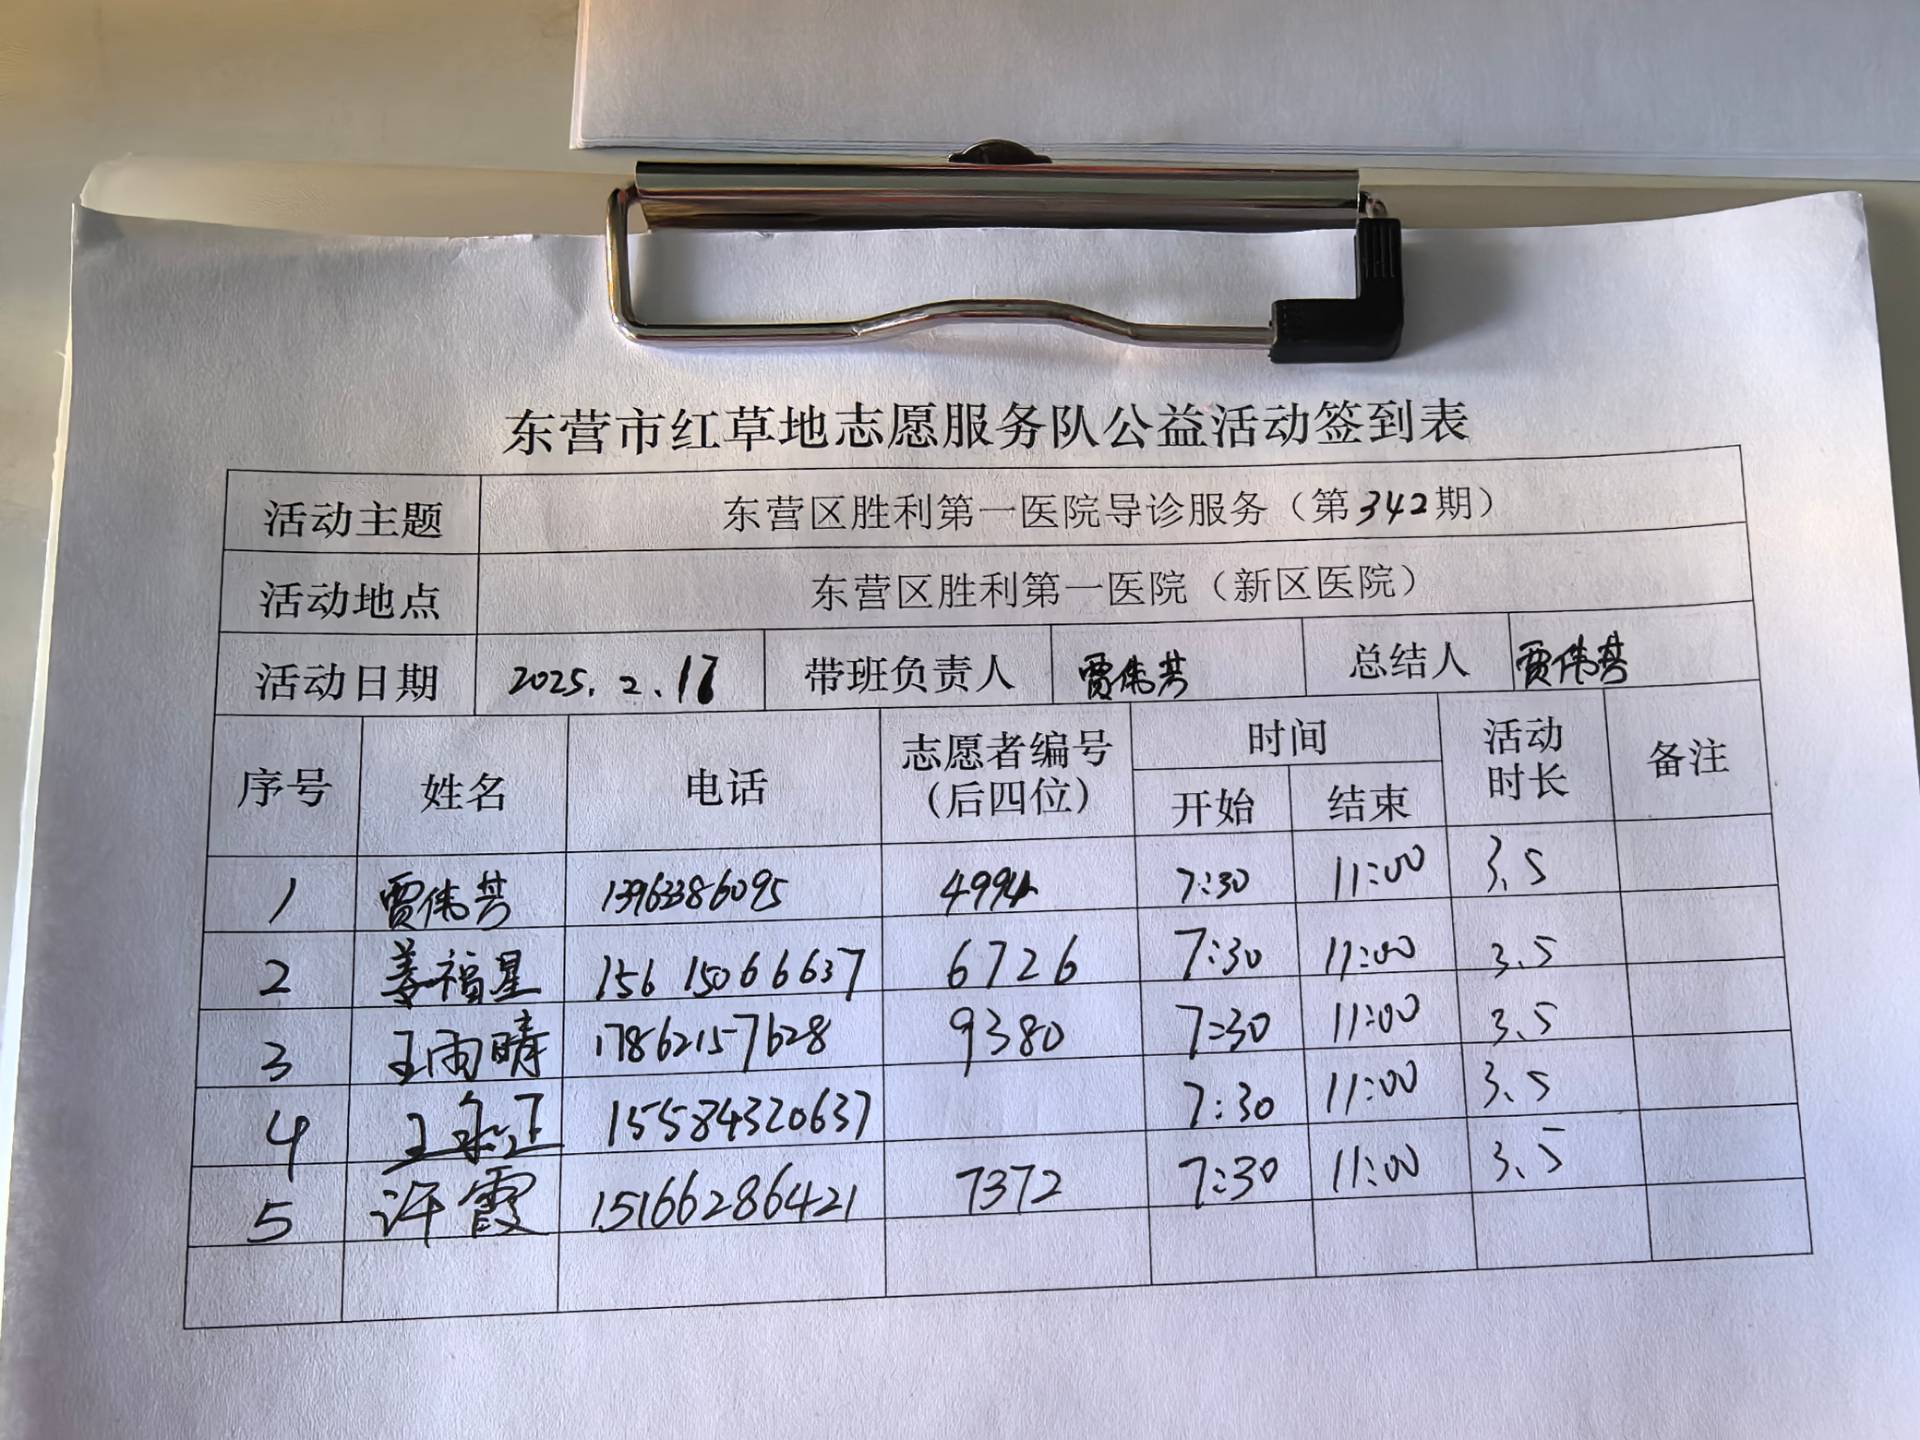 东营市红草地志愿服务队公益活动签到表
活动主题 东营区胜利第一医院导诊服务（第342期）
活动地点 东营区胜利第一医院（新区医院）
活动日期 2025.2.17 带班负责人 贾伟芳 总结人 贾伟芳
序号 姓名 电话 志愿者编号（后四位） 时间 开始 结束 活动时长 备注
1 贾伟芳 13963386095 4994 7:30 11:00 3.5
2 姜福星 15615066637 6726 7:30 11:00 3.5
3 王雨晴 17862157628 9380 7:30 11:00 3.5
4 王永正 15584320637 7:30 11:00 3.5
5 许霞 15166286421 7372 7:30 11:00 3.5